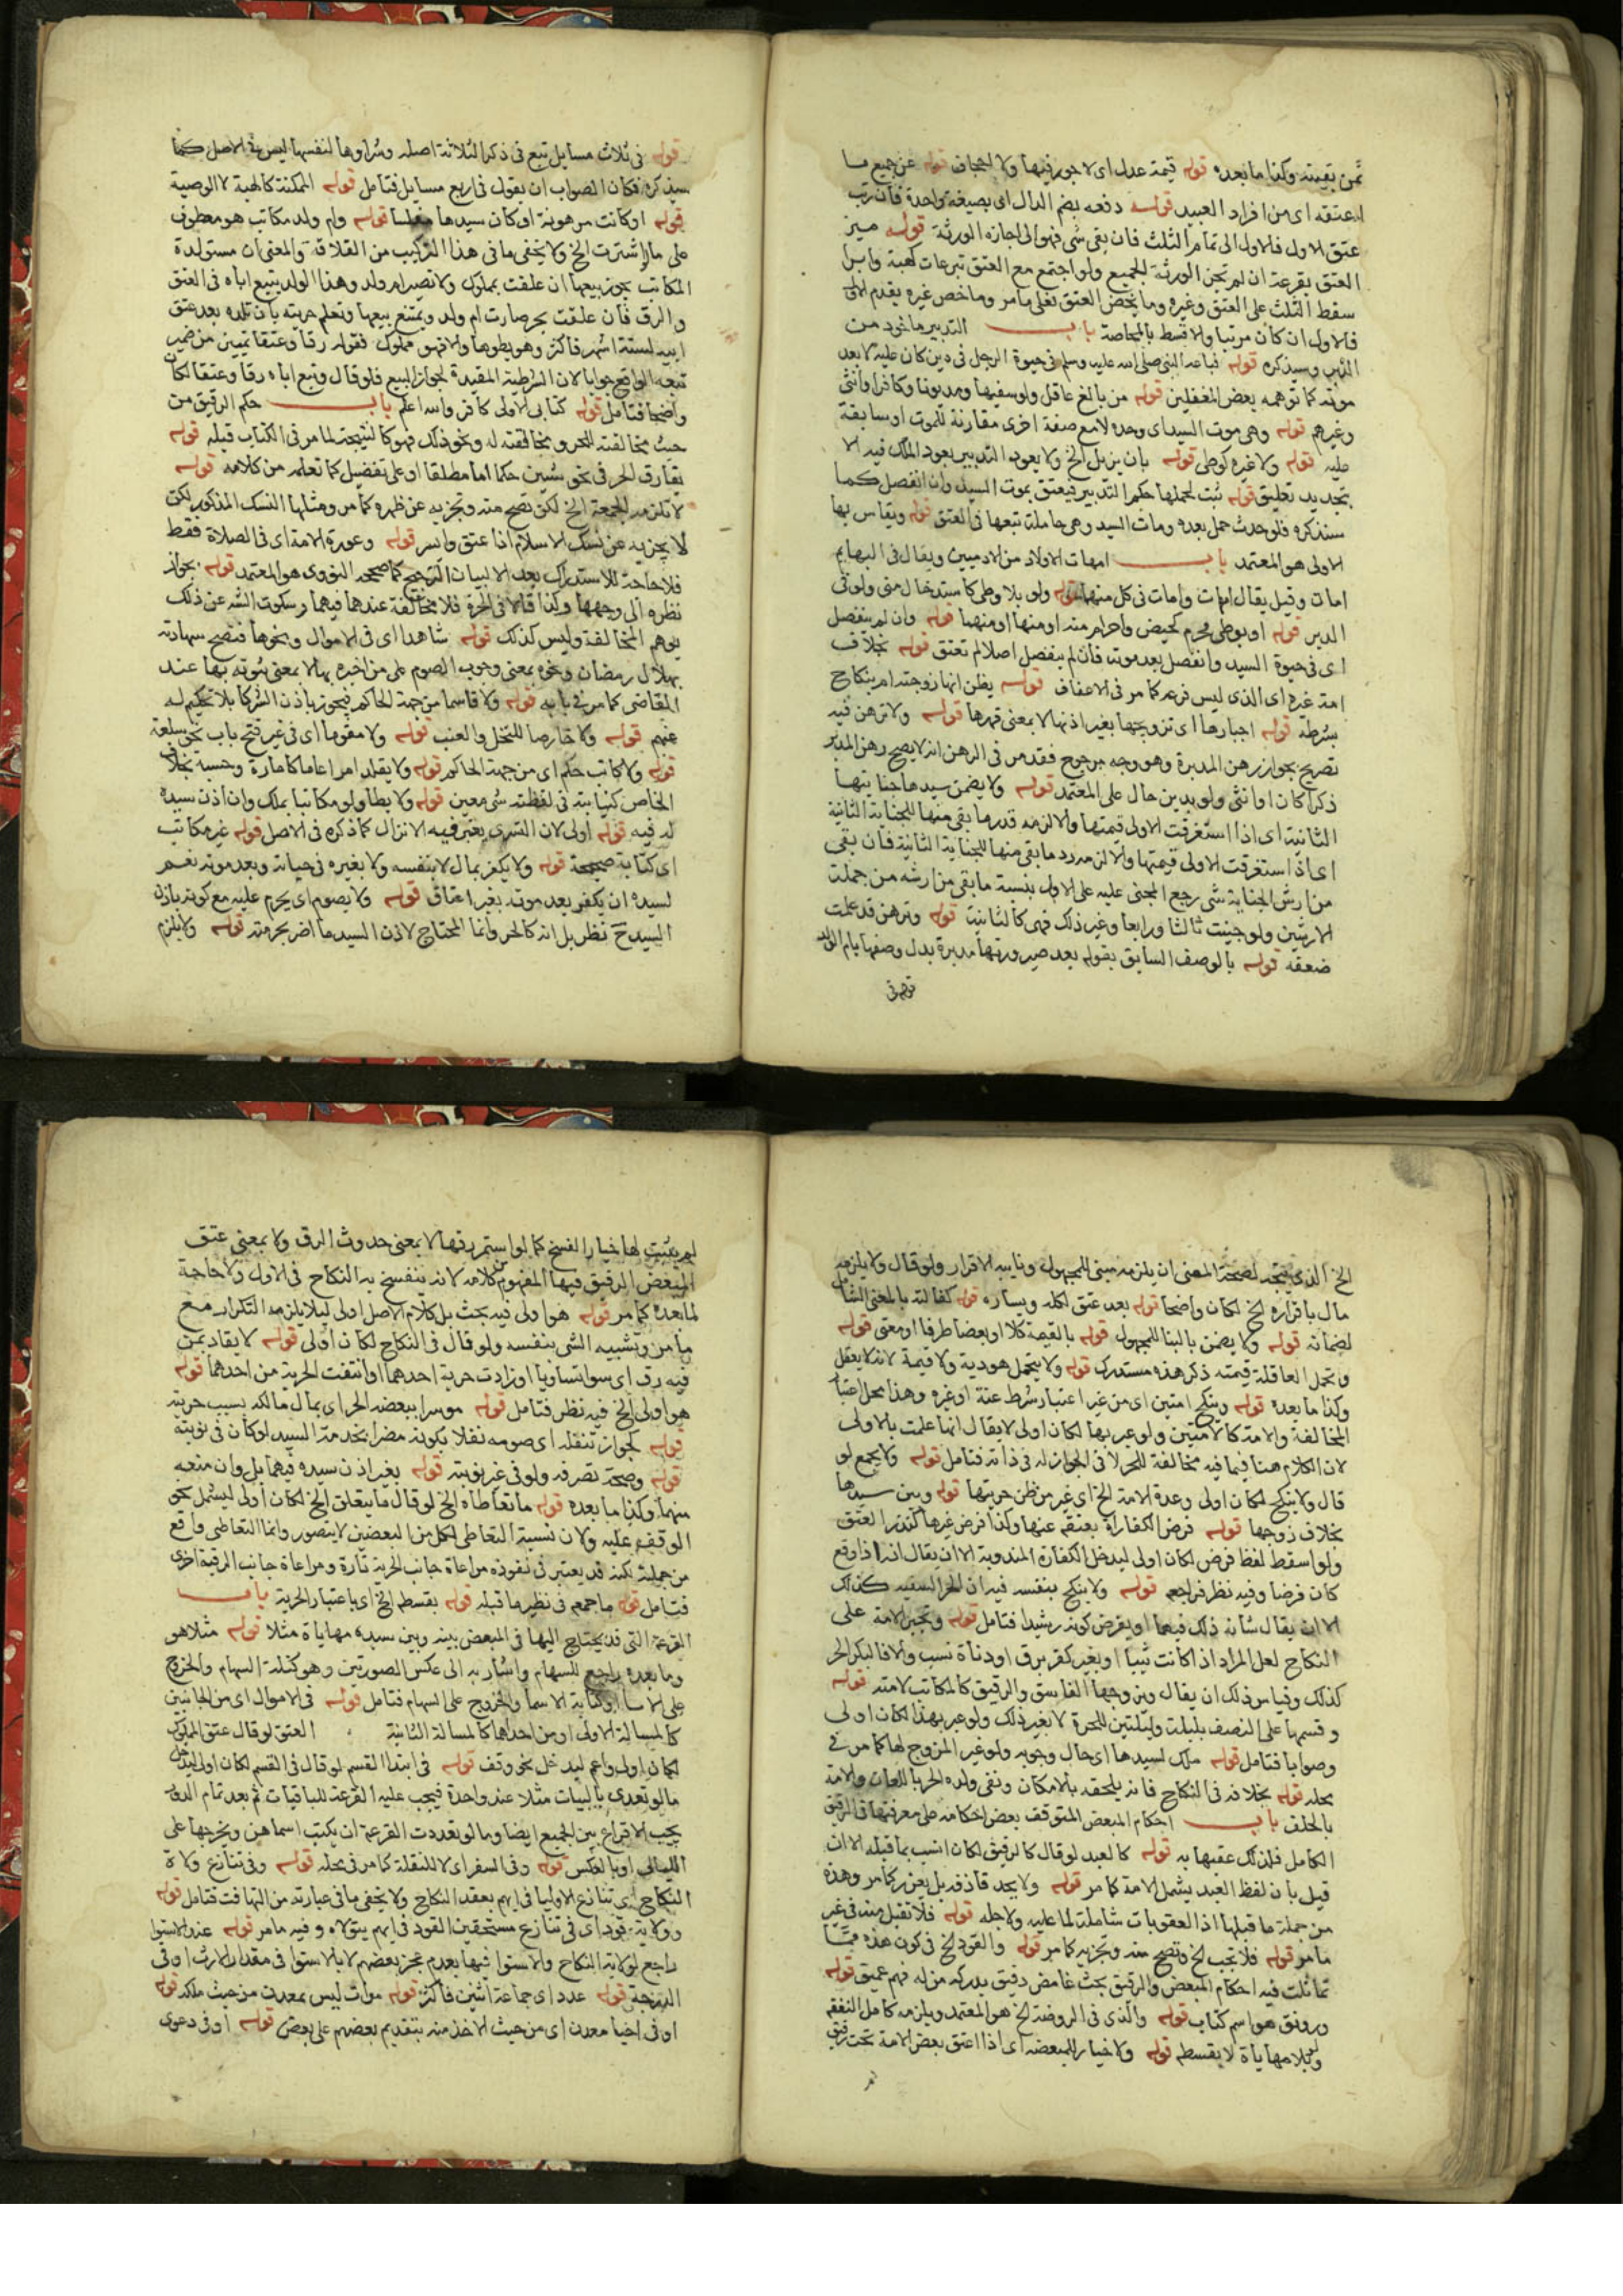 ثمن بقيته وكذا ما بعده قوله قيمة عدل اى لا جور فيها ولا اجحاف قوله عن جميع ما
اعتقه اى من افراد العبيد قوله دفعه بضم الدال اى بصيغة واحدة فان رتب
عتق الاول فالاول الى تمام الثلث فان بقى شى فهو الى اجازه الورثة قوله ميز
العتق بقرعة ان لم تجز الورثة الجميع ولو اجتمع مع العتق تبرعات كهبة وابرا
سقط الثلث على العتق وغيره وما يخص العتق فعلى ما مر وما خص غيره يقدم الاول
فالاول ان كان مرتبا والا قسط بالمحاصة باب التدبير ماخوذ من
الدبر وسيذكره قوله فباعه النبى صلى الله عليه وسلم فى حيوة الرجل فى دين كان عليه لا بعد
موته كما توهمه بعض المغفلين قوله من بالغ عاقل ولو سفيها ومديونا وكافرا وانثى
وغيرهم قوله وهى موت السيد اى وحده لا مع صفة اخرى مقارنة للموت او سابقة
عليه قوله ولا غيره كوطى قوله بان يزيل الخ ولا يعود التدبير بعود الملك فيه الا
بتجديد تعليق قوله ثبت لحملها حكم التدبير فيعتق بموت السيد وان انفصل كما
سنذكره فلو حدث حمل بعده ومات السيد وهى حامله تبعها فى العتق قوله ويقاس بها
الاولى هو المعتمد باب امهات الاولاد من الادميين ويقال فى البهايم
امات وقيل يقال امهات وامات فى كل منهما قوله ولو بلا وطى كاستدخال منى ولو فى
الدبر قوله او بوطى محرم كحيض واحرام منه او منها او منهما قوله وان لم ينفصل
اى فى حيوة السيد وانفصل بعد موته فان لم ينفصل اصلا لم تعتق قوله بخلاف
امة غيره اى الذى ليس فرعه كما مر فى الاعفاف قوله يظن انها زوجته ام بنكاح
بشرطه قوله اجبارها اى تزويجها بغير اذنها لا بمعنى قهرها قوله ولا ترهن فيه
تصريح بجواز رهن المدبرة وهو وجه مرجوح فقد مر فى الرهن انه لا يصح رهن المدبر
ذكرا كان او انثى ولو بدين حال على المعتمد قوله ولا يضمن سيدها جنايتها
الثانية اى اذا استغرقت الاولى قيمتها والا لزمه قدر ما بقى منها للجناية الثانية
اى اذا استغرقت الاولى قيمتها والا لزمه رد ما بقى منها للجناية الثانية فان بقى
من ارش الجناية شى رجع المجنى عليه على الاول بنسبة ما بقى من ارشه من جملة
الارشين ولو جنيت ثالثا ورابعا وغير ذلك فهى كالثانية قوله وترهن قد علمت
ضعفه قوله بالوصف السابق بقوله بعد صيرورتها مدبرة بدل وصفها بام الولد
قوله فى
قوله فى ثلاث مسايل تبع فى ذكر الثلاثة اصله وشراوها لنفسها ليس فى الاصل كما
سيذكره فكان الصواب ان يقول فى اربع مسايل فتامل قوله الممكنة كالهبة لا الوصية
قوله او كانت مرهونة او كان سيدها مفلسا قوله وام ولد مكاتب هو معطوف
على ما لو اشترت الخ ولا يخفى ما فى هذا التركيب من القلاقة والمعنى ان مستولدة
المكاتب يجوز بيعها ان علقت بمملوك ولا تصير ام ولد وهذا الولد يتبع اباه فى العتق
والرق فان علقت بحر صارت ام ولد ويمتنع بيعها وتعلم حريته بان تلده بعد عتق
ابيه لستة اشهر فاكثر وهو يطوها والا فهو مملوك فقوله رقا وعتقا تمييز من ضمير
تبعه الواقع جوابا لان الشرطية المقيدة لجواز البيع فلو قال وتبع اباه رقا وعتقا لكان
واضحا فتامل قوله كتابى الاولى كافر والله اعلم باب حكم الرقيق من
حيث مخالفته للحر ومخالفته له ونحو ذلك فهو كالنتيجة لما مر فى الكتاب قبله قوله
يفارق الحر فى نحو ستين حكما اما مطلقا او على تفضيل كما تعلمه من كلامه قوله
لا تلزمه الجمعة الخ لكن تصح منه وتجزيه عن ظهره كما مر ومثلها النسك المذكور لكن
لا يجزيه عن نسك الاسلام اذا عتق وايسر قوله وعورة الامة اى فى الصلاة فقط
فلا حاجة للاستدراك بعد الا لبيان الترجيح كما صححه النووى هو المعتمد قوله بجواز
نظره الى وجهها وكذا قالا فى الحرة فلا مخالفة عندهما فيهما وسكوت الشه عن ذلك
يوهم المخالفة وليس كذلك قوله شاهدا اى فى الاموال ونحوها فتصح شهادته
بهلال رمضان ونحوه بمعنى وجوب الصوم على من اخبره بها لا بمعنى ثبوته بها عند
القاضى كما مر فى بابه قوله ولا قاسما من جهة الحاكم فيجوز باذن الشركا بلا تحكيم له
عنهم قوله ولا خارصا للنخل والعنب قوله ولا مقوما اى فى غير فتح باب نحو سلعة
قوله ولا كاتب حكم اى من جهة الحاكم قوله ولا يقلد امرا عاما كامارة وحسبة بخلاف
الخاص كنيابته فى لفظته شى معين قوله ولا يطا ولو مكاتبا بملك وان اذن سيده
له فيه قوله اولى لان التسرى يعتبر فيه الانزال كما ذكره فى الاصل قوله غير مكاتب
اى كتابة صحيحة قوله ولا يكفر بمال لا بنفسه ولا بغيره فى حياته وبعد موته نعم
لسيده ان يكفر بعد موته بغير اعتاق قوله ولا يصوم اى يحرم عليه مع كونه باذن
السيد ح نظر بل انه كالحر وانما المحتاج لاذن السيد ما اضر بحرمته قوله ولا يلزم
الخ الذى يتجه لصحة المعنى ان يلزمه مبنى للمجهول ونايبه الاقرار ولو قال ولا يلزمه
مال باقراره الخ لكان واضحا قوله بعد عتق لكله ويساره قوله كفالته بالمعنى الشامل
لضمانه قوله ولا يضمن بالبنا للمجهول قوله بالقيمة كلا او بعضا طرفا او معنى قوله
وتحمل العاقلة قيمته ذكر هذه مستدرك قوله ولا يتحمل هو دية ولا قيمة لانه لا يعقل
وكذا ما بعده قوله وينكح امتين اى من غير اعتبار شرط عنة او غيره وهذا محل اعتبار
المخالفة والامة كالامتين ولو عبر بها لكان اولى لا يقال انها علمت بالاولى
لان الكلام هنا فيما فيه مخالفة للحر لا فى الجواز له فى ذاته فتامل قوله ولا يجمع لو
قال ولا ينكح لكان اولى وعدة الامة الخ اى غير من ظن حريتها قوله وبين سيدها
بخلاف زوجها قوله فرض الكفارة بعتقه عنها وكذا فرض غيرها كنذر العتق
ولو اسقط لفظ فرض لكان اولى ليدخل الكفارة المندوبة الا ان يقال انه اذا وقع
كان فرضا وفيه نظر فراجعه قوله ولا ينكح بنفسه فيه ان الحر السفيه كذلك
الا ان يقال شانه ذلك فيهما او يفرض كونه رشيدا فتامل قوله وتجبر الامة على
النكاح لعل المراد اذا كانت ثيبا او بغير كفو برق او دناة نسب والا فالبكر الحر
كذلك وقياس ذلك ان يقال ويزوجها الفاسق والرقيق كالمكاتب لامته قوله
وقسمها على النصف بليلة وليلتين للحرة لا بغير ذلك ولو عبر بهذا لكان اولى
وصوابا فتامل قوله ملك لسيدها اى حال وجوبه ولو غير المزوج لها كما مر فى
محله قوله بخلافه فى النكاح فانه يلحقه بالامكان ونفى ولده الحر باللعان والامة
بالحلف باب احكام المبعض المتوقف بعض احكامه على معرفتها فى الرقيق
الكامل فلذلك عقبها به قوله كالعبد لو قال كالرقيق لكان انسب بما قبله الا ان
قيل بان لفظ العبد يشمل الامة كما مر قوله ولا يحد قاذفه بل يعزر كما مر وهذه
من جملة ما قبلها اذ العقوبات شاملة لما عليه ولاجله قوله فلا تقبل منه فى غير
ما مر قوله فلا تجب الخ وتصح منه وتجزيه كما مر قوله والقود الخ فى كون هذه مما
تماثلت فيه احكام المبعض والرقيق بحث غامض دقيق يدركه من له فهم عميق قوله
ورونق هو اسم كتاب قوله والذى فى الروضة الخ هو المعتمد ويلزمه كامل النفقه
ولو بلا مهاياة لا بقسطه قوله ولا خيار للمبعضه اى اذا اعتق بعض الامة تحت رقيق
لم
لم يثبت لها خيار الفسخ كما لو استمر رقها لا بمعنى حدوث الرق ولا بمعنى عتق
المبعض الرقيق فيها المفهوم من كلامه لانه ينفسخ به النكاح فى الاول ولا حاجة
لما بعده كما مر قوله هو اولى فيه بحث بل كلام الاصل اولى ليلا يلزمه التكرار مع
ما مر وتشبيه الشى بنفسه ولو قال فى النكاح لكان اولى قوله لا يقاد بمن
فيه رق اى سوا تساويا او زادت حرية احدهما او انتفت الحرية من احدهما قوله
هو اولى الخ فيه نظر فتامل قوله موسرا ببعضه الحر اى بمال مالكه بسبب حريته
قوله لجواز تنفله اى صومه نفلا بكونه مضرا بخدمة السيد لو كان فى نوبته
قوله وصحة تصرفه ولو فى غير نوبته قوله بغير اذن سيده فيهما بل وان منعه
منهما وكذا ما بعده قوله ما تعاطاه الخ لو قال ما يتعلق الخ لكان اولى ليشمل نحو
الوقف عليه ولان نسبة التعاطى لكل من البعضين لا يتصور وانما التعاطى واقع
من جملته لكنه قد يعتبر فى نفوذه مراعاة جانب الحرية تارة ومراعاة جانب الرقية اخرى
فتامل قوله ما جمعه فى نظير ما قبله قوله بقسطه الخ اى باعتبار الحرية باب
القرعة التى قد يحتاج اليها فى المبعض بينه وبين سيده مهاياة مثلا قوله مثلا هو
وما بعده راجع للسهام واشار به الى عكس الصورتين وهو كتابة السهام والخروج
على الاسما او كتابة الاسما والخروج على السهام فتامل قوله فى الاموال اى من الجانبين
كالمسالة الاولى او من احداها كالمسالة الثانية العتق لو قال عتق المملوك
لكان اولى واعم ليدخل نحو وقف قوله فى ابتدا القسم لو قال فى القسم لكان اولى ليدخل
ما لو تعدى بالبيات مثلا عند واحدة فيجب عليه القرعة للباقيات ثم بعد تمام الدور
يجب الاقراع بين الجميع ايضا وما لو تعددت القرعة ان يكتب اسماهن ويخرجها على
الليالى او بالعكس قوله وفى السفر اى لا للنقلة كما مر فى محله قوله وفى تنازع ولاة
النكاح اى تنازع الاوليا فى ايهم يعقد النكاح ولا يخفى ما فى عبارته من التهافت فتامل قوله
وولاية قود اى فى تنازع مستحقين القود فى ايهم يتولاه وفيه ما مر قوله عند الاستوا
راجع لولاية النكاح والاستوا فيها بعدم عجز بعضهم لا بالاستوا فى مقدار الارث او فى
الدرجة قوله عدد اى جماعة اثنين فاكثر قوله موات ليس بمعدن من حيث ملكه قوله
او فى احيا معدن اى من حيث الاخذ منه بتقديم بعضهم على بعض قوله او فى دعوى